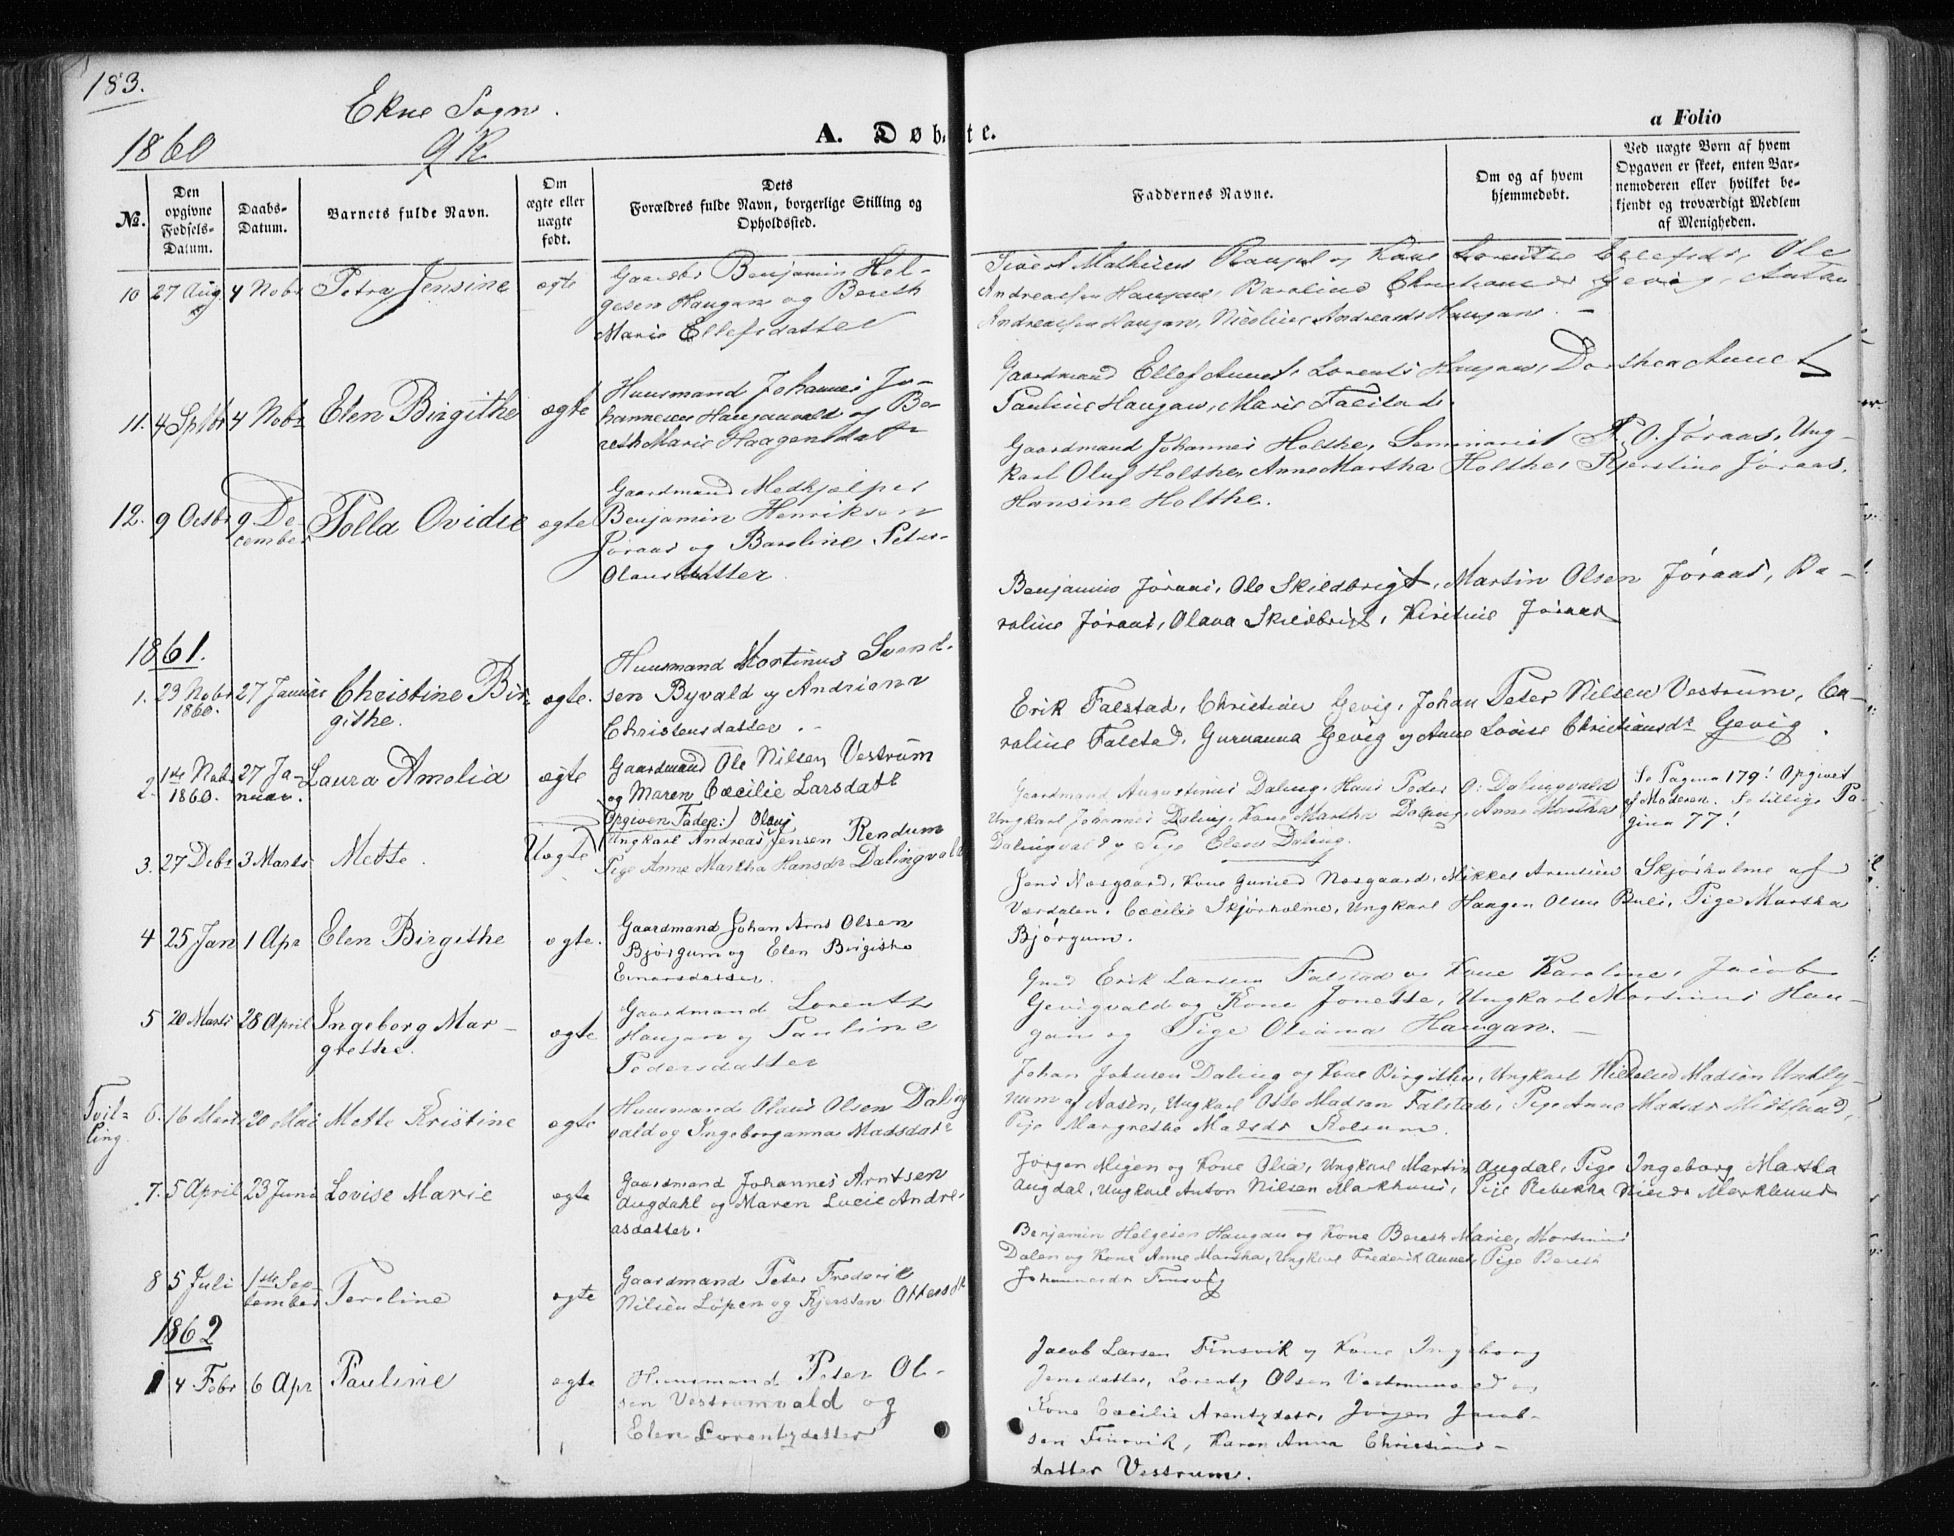 183.
Ekne Sogn.
1860
QK
A. Døbte.
a Folio
No.
Den opgivne Fødsels-Datum.
Daabs-Datum.
Barnets fulde Navn.
Om ægte eller uægte født.
Dets Forældres fulde Navn, borgerlige Stilling og Opholdssted.
Faddernes Navne.
Om og af hvem hjemmedøbt.
Ved uægte Børn af hvem Opgaven er skeet, enten Barnemoderen eller hvilket bekjendt og troværdigt Medlem af Menigheden.
10 27 Aug 4 Nobr Petra Jensine ægte
Gaardbr Benjamin Hel-
gesen Haugan og Bereth
Marie Ellefsdatter
Sivert Mathisen og Kone Lorentse Ellefsdr, Ole
Andreassen Haugan, Karoline Christiansdr Gevig, Anton
Andreassen Haugan, Nicoline Andreasdr Haugan. -
11. 4 Sptbr 4 Nobr Elen Birgithe ægte
Huusmand Johannes Jo-
hannesen Hauganvald og Be-
reth Marie Haagensdatr
Gaardmand Ellef Aunet, Lorents Haugan, Dorthea Aunet
Pauline Haugan, Marie Falstad.
Gaardmand Johannes Holthe, Seminarist P. O. Jøraas, Ung-
karl Oluf Holthe, Anne Martha Holthe, Kjerstine Jøraas,
Hansine Holthe.
12. 9 Octbr 9 De-
cember Polla Ovidie ægte
Gaardmand Medhjelper
Benjamin Henriksen
Jøraas og Karoline Peter
Olausdatter.
Benjamin Jøraas, Ole Skildbrigt, Martin Olsen Jøraas, Ka-
roline Jøraas, Olava Skildbrigt, Kirstine Jøraas
1861.
1. 23 Nobr 1860. 27 Januar Christine Bir-
githe. ægte.
Huusmand Mortinus Svend-
sen Byvald og Andriana
Christensdatter. -
Erik Falstad, Christian Gevig, Johan Peter Nilsen Vestrum, Ca-
roline Falstad, Guruanna Gevig og Anne Lovise Christiansdr Gevig.
2. 1ste Nobr 1860. 27 Ja-
nuar. Laura Amalia ægte
Gaardmand Ole Nilsen Vestrum
og Maren Cæcilie Larsdatr
Gaardmand Augustinus Daling, Hans Peder O: Dalingvald
Ungkarl Johannes Daling, Kone Martha Daling, Anne Martha
Dalingvald og Pige Elen Daling.
Se Pagina 179! Opgivet
af Moderen. Se tillige Pa-
gina 77!
3. 27 Debr 3 Marts Mette. Uægte
(Opgiven Fader:) Olaus
Ungkarl Andreas Jensen Rendum
Pige Anne Martha Hansdr Dalingvald
Jens Næsgaard, Kone Gunild Næsgaard, Mikkel Arentsen Skjørholme af
Værdalen, Cæcilie Skjørholme, Ungkarl Haagen Olsen Buli, Pige Martha
Bjørgum.
4 25 Jan 1 Apr Elen Birgithe ægte.
Gaardmand Johan Arnt Olsen
Bjørgum og Elen Birgitha
Einarsdatter.
Gmd Erik Larsen Falstad og Kone Karoline, Jacob
Gevigvald og Kone Jonette, Ungkarl Mortinus Hau-
gan og Pige Oliana Haugan. -
5 20 Marts 28 April Ingeborg Mar-
grethe. ægte
Gaardmand Lorents
Haugan og Pauline
Pedersdatter
Johan Johnsen Daling og Kone Birgitha, Ungkarl Mikkel Madsen Undly-
num af Aasen, Ungkarl Otte Madsen Falstad, Pige Anne Madsdr
Pige Margrethe Matsdr Kolsum.
Tvil-
ling. 6. 16 Marts 20 Mai Mette Kristine ægte
Huusmand Olaus Olsen Daling
vald og Ingeborganna Madsdatr
Jørgen Nigen og Kone Olia, Ungkarl Martin Augdal, Pige Ingeborg Martha
Augdal, Ungkarl Anton Nilsen Markhuus, Pige Rebekka Nielsdr Markhuus
7. 5 April 23 Juni Lovise Marie ægte
Gaardmand Johannes Arntsen
Augdahl og Maren Lucie Andre-
asdatter.
Benjamin Helgesen Haugan og Kone Bereth Marie, Mortinus
Dalen og Kone Anne Martha, Ungkarl Frederik Aunet, Pige Bereth
Johannesdr Finsvig
8 5 Juli 1ste Sep-
tember Peroline ægte
Gaardmand Peter Frederik
Nilsen Løpen og Kjersten Ottersdtr
1862
1 4 Febr 6 Apr Pauline ægte
Huusmand Peter Ol-
sen Vestrumvald og
Elen Lorentzdatter
Jacob Larsen Finsvik og Kone Ingeborg
Jensdatter, Lorentz Olsen og
Kone Cæcilie Arentzdatr, Jørgen Jacob-
sen Finsvik, Karen Anna Christians-
datter Vestrum.